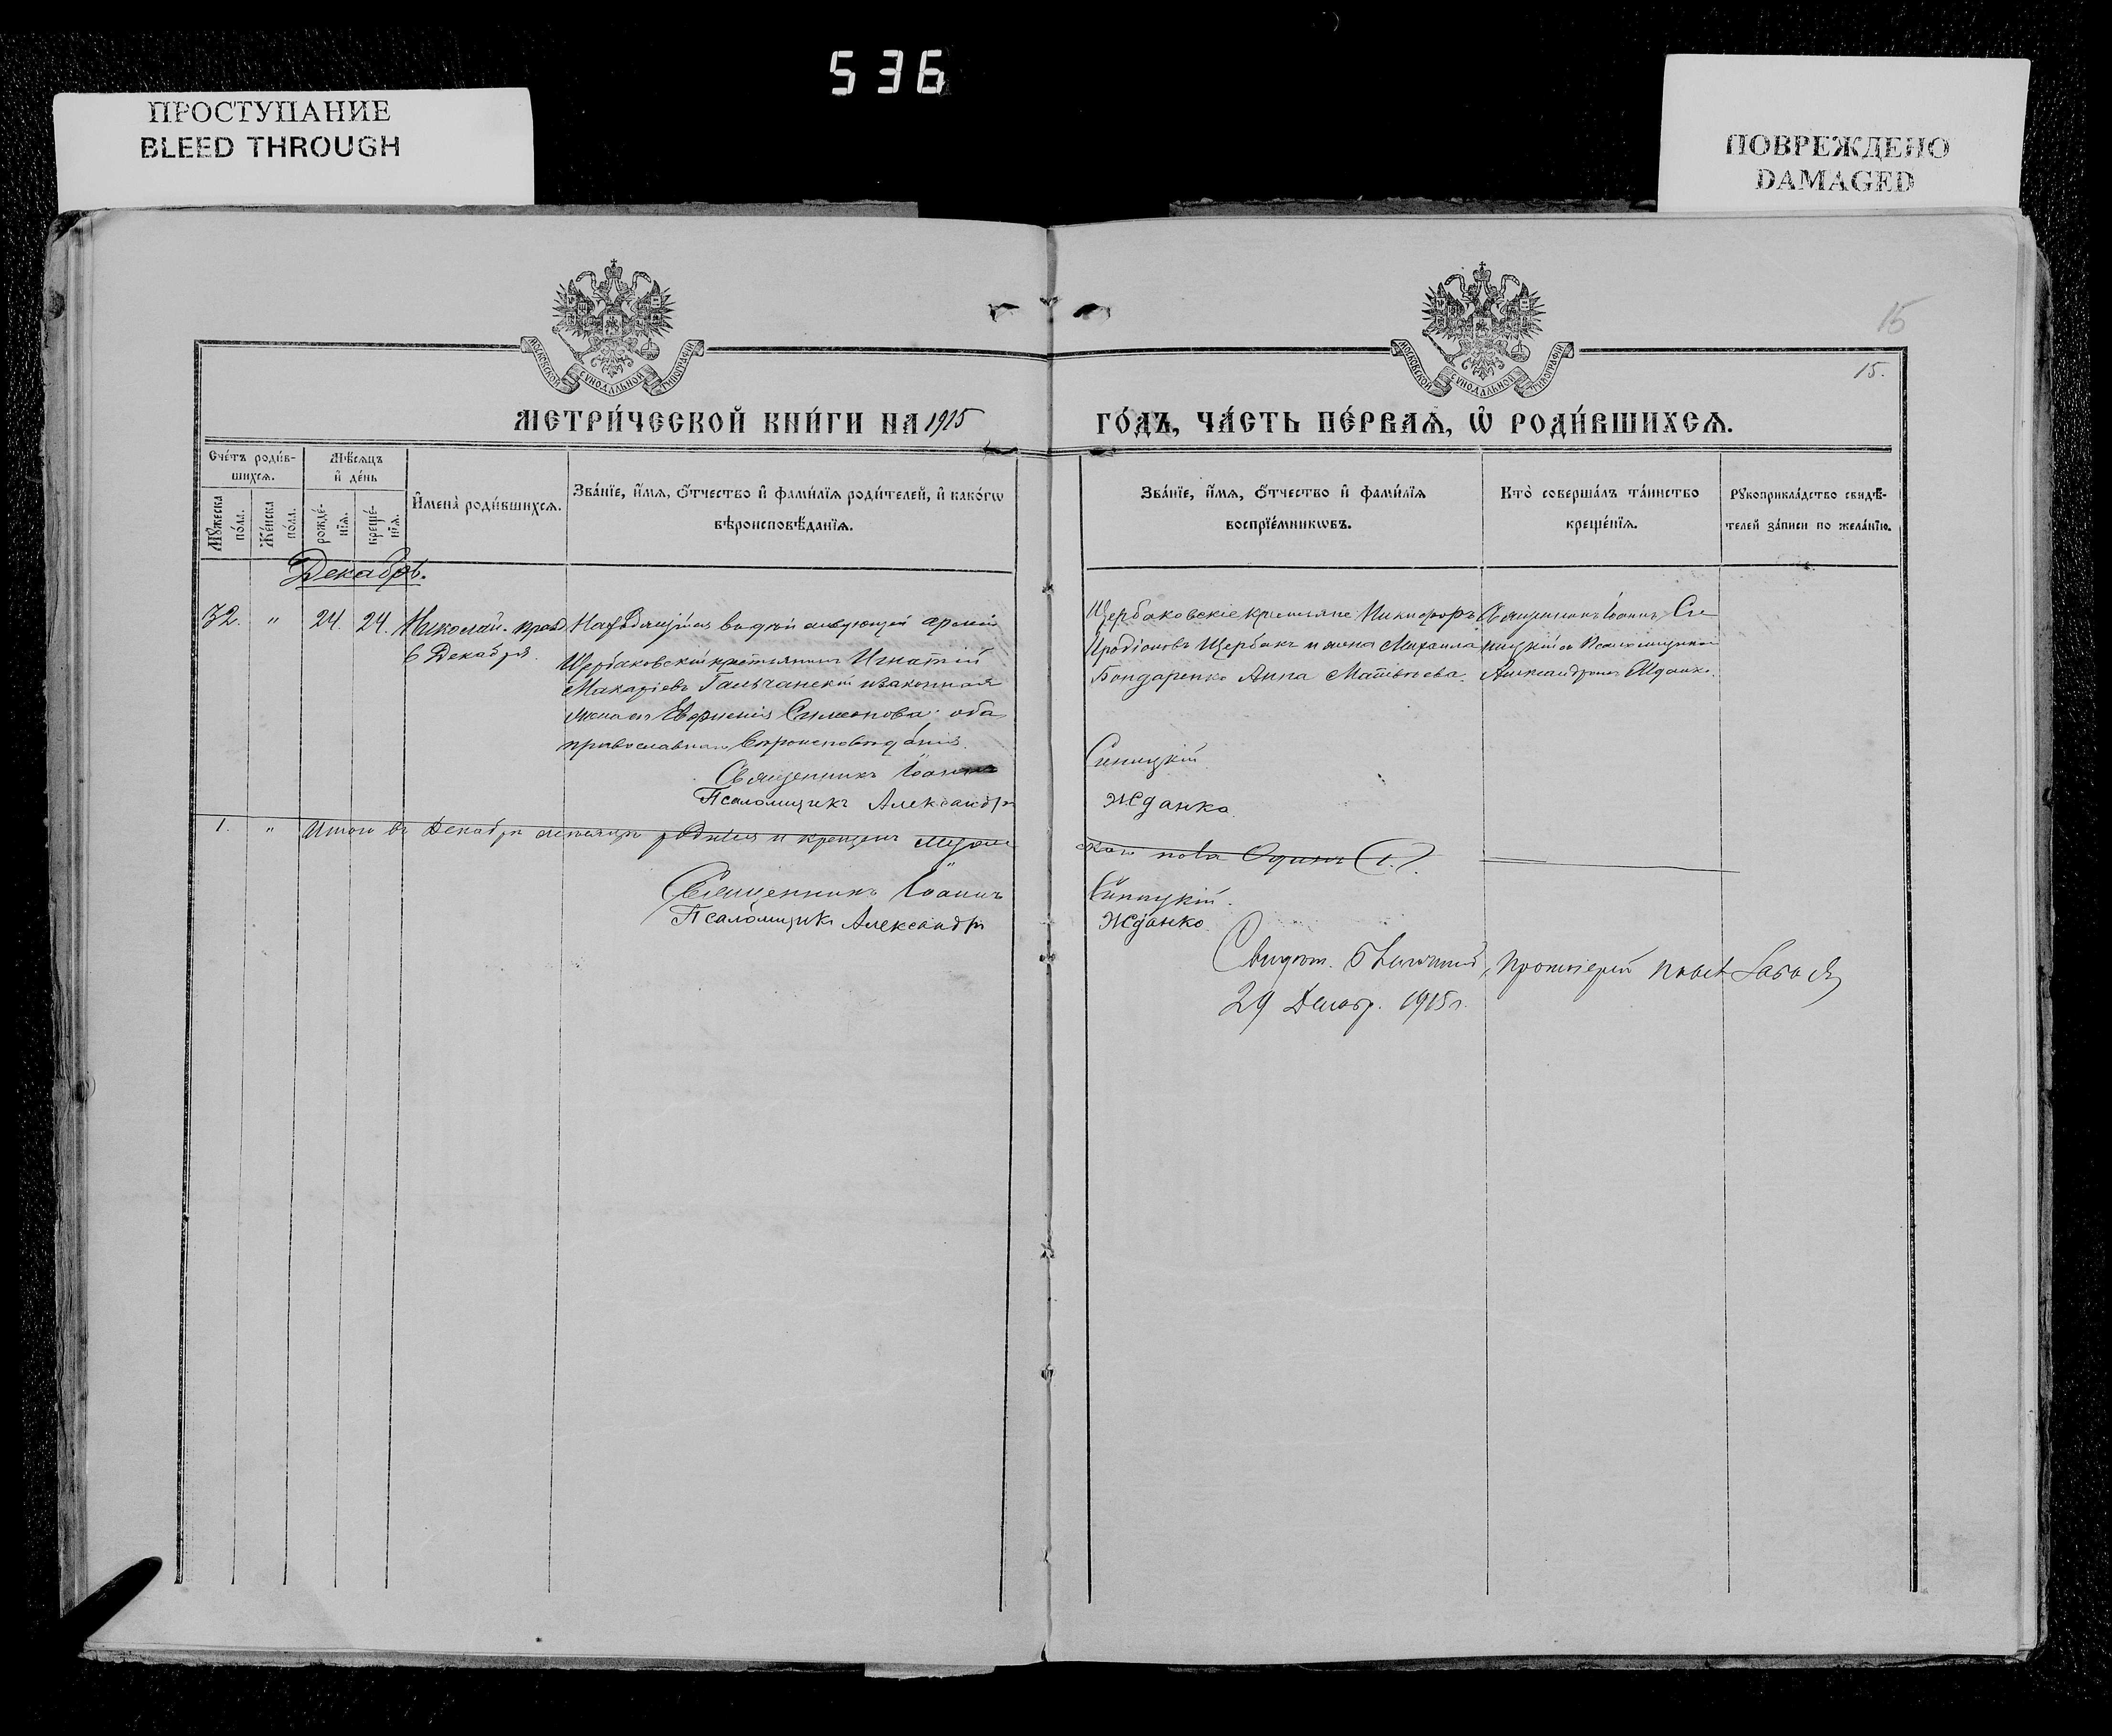 536
ПРОСТУПАНИЕ
BLEED THROUGH
ПОВРЕЖДЕНО
DAMAGED
МОСКОВСКОЙ СУНОДАЛЬНОЙ ТИПОГРАФІИ
МОСКОВСКОЙ СУНОДАЛЬНОЙ ТИПОГРАФІИ
15
15.
МЕТРИ́ЧЕСКОЙ КНИ́ГИ НА 1915
ГО́ДЪ, ЧА́СТЬ ПЕ́РВАѦ, Ѡ҆ РОДИ́ВШИХСѦ.
Сче́тъ роди́в-
шихсѧ.
Мꙋ́жеска по́ла.
Же́нска по́ла.
Мѣ́сѧцъ
и҆ де́нь
рожде́-
нїѧ.
креще́-
нїѧ.
И҆мена̀ роди́вшихсѧ.
Зва́нїе, и҆́мѧ, ѻ҆́тчество и҆ фами́лїѧ роди́телей, и҆ како́гѡ
вѣроисповѣ́данїѧ.
Зва́нїе, и҆́мѧ, ѻ҆́тчество и҆ фами́лїѧ
воспрїе́мникѡвъ.
Кто̀ соверша́лъ та́инство
креще́нїѧ.
Рꙋкоприкла́дство свидѣ́-
телей за́писи по жела́нїю.
Декабрь.
32. " 24. 24. Николай. празд
6 Декабря.
Находящійся въ дѣйствующей арміи
Щербаковскій крестьянинъ Игнатій
Макаріевъ Гальчанскій и законная
жена его Евфимія Симеонова: оба
православнаго вѣроисповѣданія.
Щербаковскіе крестьяне: Никифоръ
Иродіоновъ Щербакъ и жена Михаила
Бондаренко Анна Матвѣева.
Священникъ Іоаннъ Си-
ницкій съ Псаломщикомъ
Александромъ Жданко.
Священникъ Іоаннъ Синицкій
Псаломщикъ Александръ Жданко.
1. " Итого въ Декабрѣ мѣсяцѣ родился и крещенъ мужес
скаго пола Одинъ (1.).
Священникъ Іоаннъ Синицкій.
Псаломщикъ Александръ Жданко
Свидѣт. Благочинный, Протоіерей
29 Декабр. 1915 г.